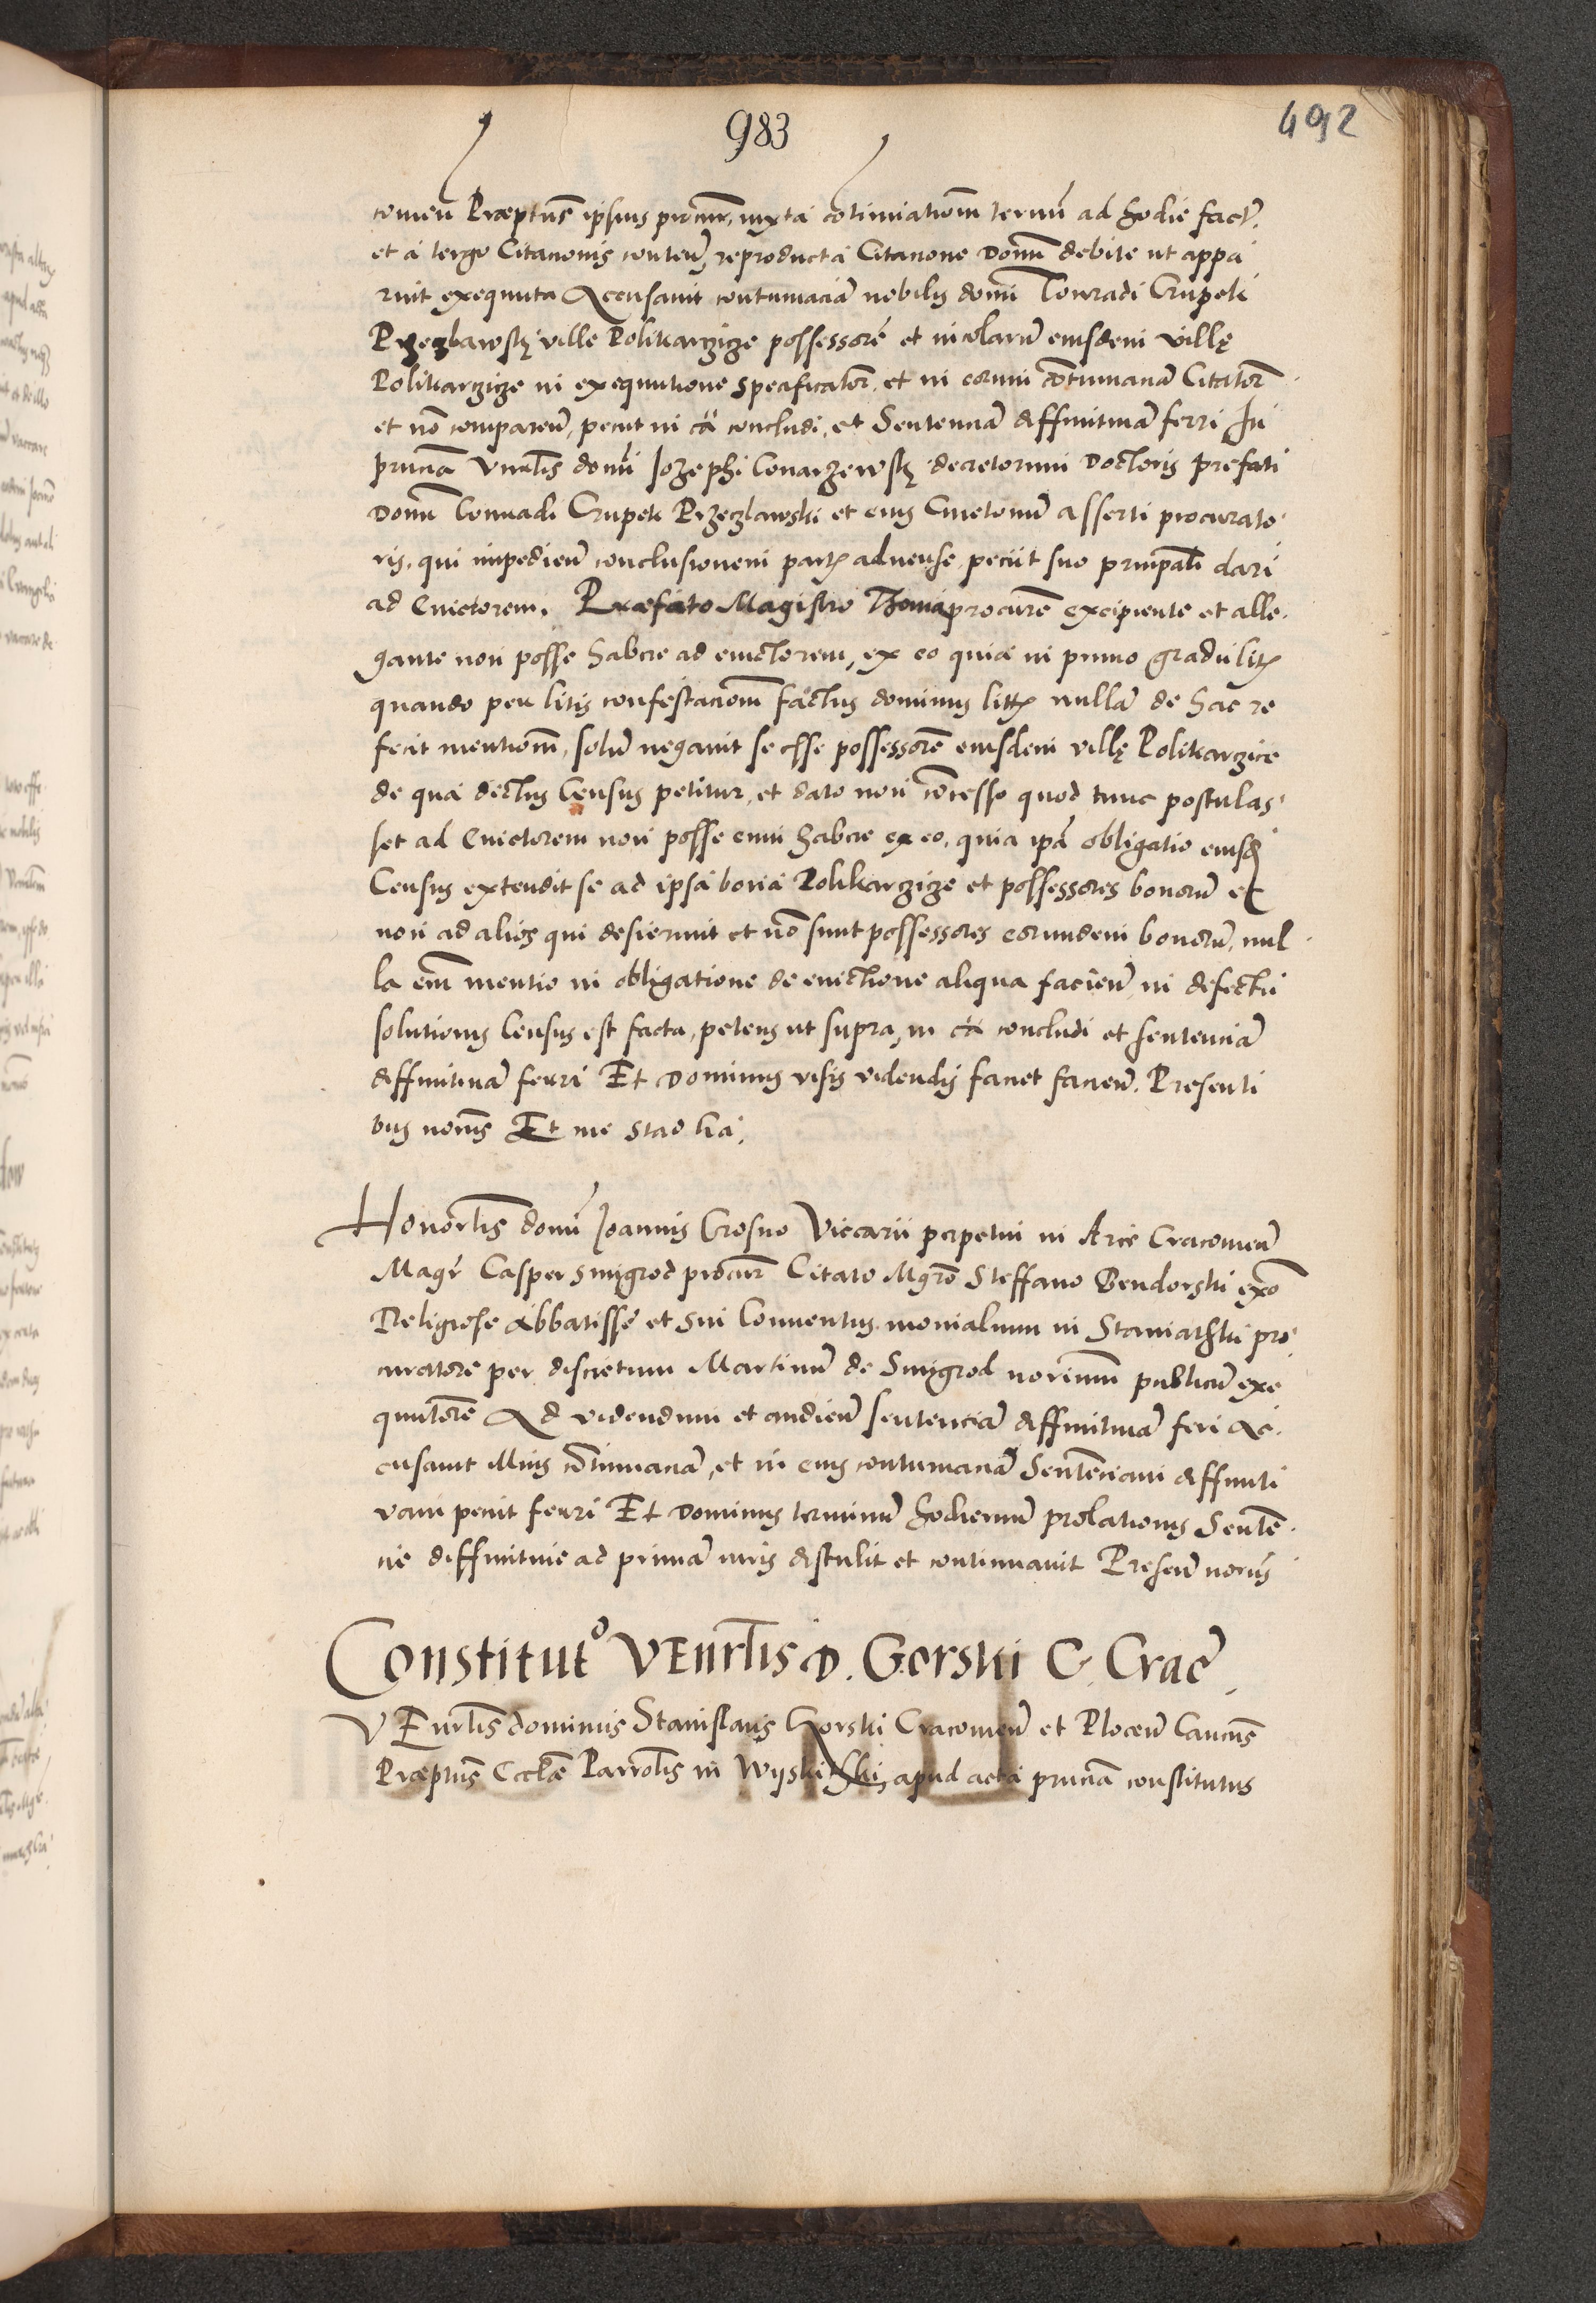 983
492
comeñ Præptus ipsius procur, iuxta cotinuationem termi ad hodie fact̃.
et a tergo Citationis conteñ, reproducta Citatione Domi debite ut appa
ruit exequuta Accusavit contumaciã nobilis domi Conradi Crupek
Przeczlawsky ville Polikarzize possessorẽ et incolarũ eiusdem villę
Polikarzize in exequutione specificator̃. et in eorum cõtumaciã Citator̃
et nõ compareñ, petiit in cã concludi, et Sententiã diffinitivã ferri In
pñciã Vnrlis domi Jozephi Conarzewsky decretorum Doctoris prefati
Domi Conradi Crupek Przeczlawski et eius Cmetonũ asserti procurato
ris, qui impedieñ conclusionem partis adverse, petiit suo principali dari
ad Evictorem. Præfato Magistro Thoma procurẽ excipiente et alle
gante non posse habere ad evictorem, ex eo quia in primo gradu litis
quando per litis contestacionem factus dominus litis nullã de hac re
fecit mentionem, solũ negavit se esse possessorẽ eiusdem villę Polikarzice
de qua dictus Census petitur, et dato non cõcesso quod tunc postulas
set ad Evictorem non posse eum habere ex eo, quia ipã obligatio eiusd
Census extendit se ad ipsa bona Polikarzize et possessores bonorũ et
non ad alios qui desierunt et nõ sunt possessores eorundem bonorũ, nul
la em̃ mentio in obligatione de evictione aliqua facieñ, in defectu
solutionis Census est facta, petens ut supra, in cã concludi et sentenciã
diffinitivã ferri Et Dominus visis videndis faciet facieñ. Presenti
bus notus Et me Stao ha
Honorlis domi Joannis Crosno Viccarii perpetui in Arce Cracovieñ
Magr̃ Casper Smigrod procur Citato Mgro Steffano Bendorski ex̃o
Religiose Abbatisse et sui Conventus monialium in Staniathki pro
curatore per discretum Martinũ de Smigrod notarium publicũ exe
quutorẽ Ad videndum et audieñ sentenciã diffinitivã feri Ac
cusavit illius cõtumaciã, et in eius contumaciã Sentenciam diffiniti
vam petiit ferri Et Dominus terminũ hodiernũ prolationis Senten
cie diffinitive ad primã iuris distulit et continuavit Preseñ notus
Constitutº VEnrlis D. Gorski C. Crac̃
VEnrlis dominus Stanislaus Gorski Cracovieñ et Ploceñ Canicus
Præptus Ecclæ Parrolis in Wyskithki, apud acta pñcia constitutus